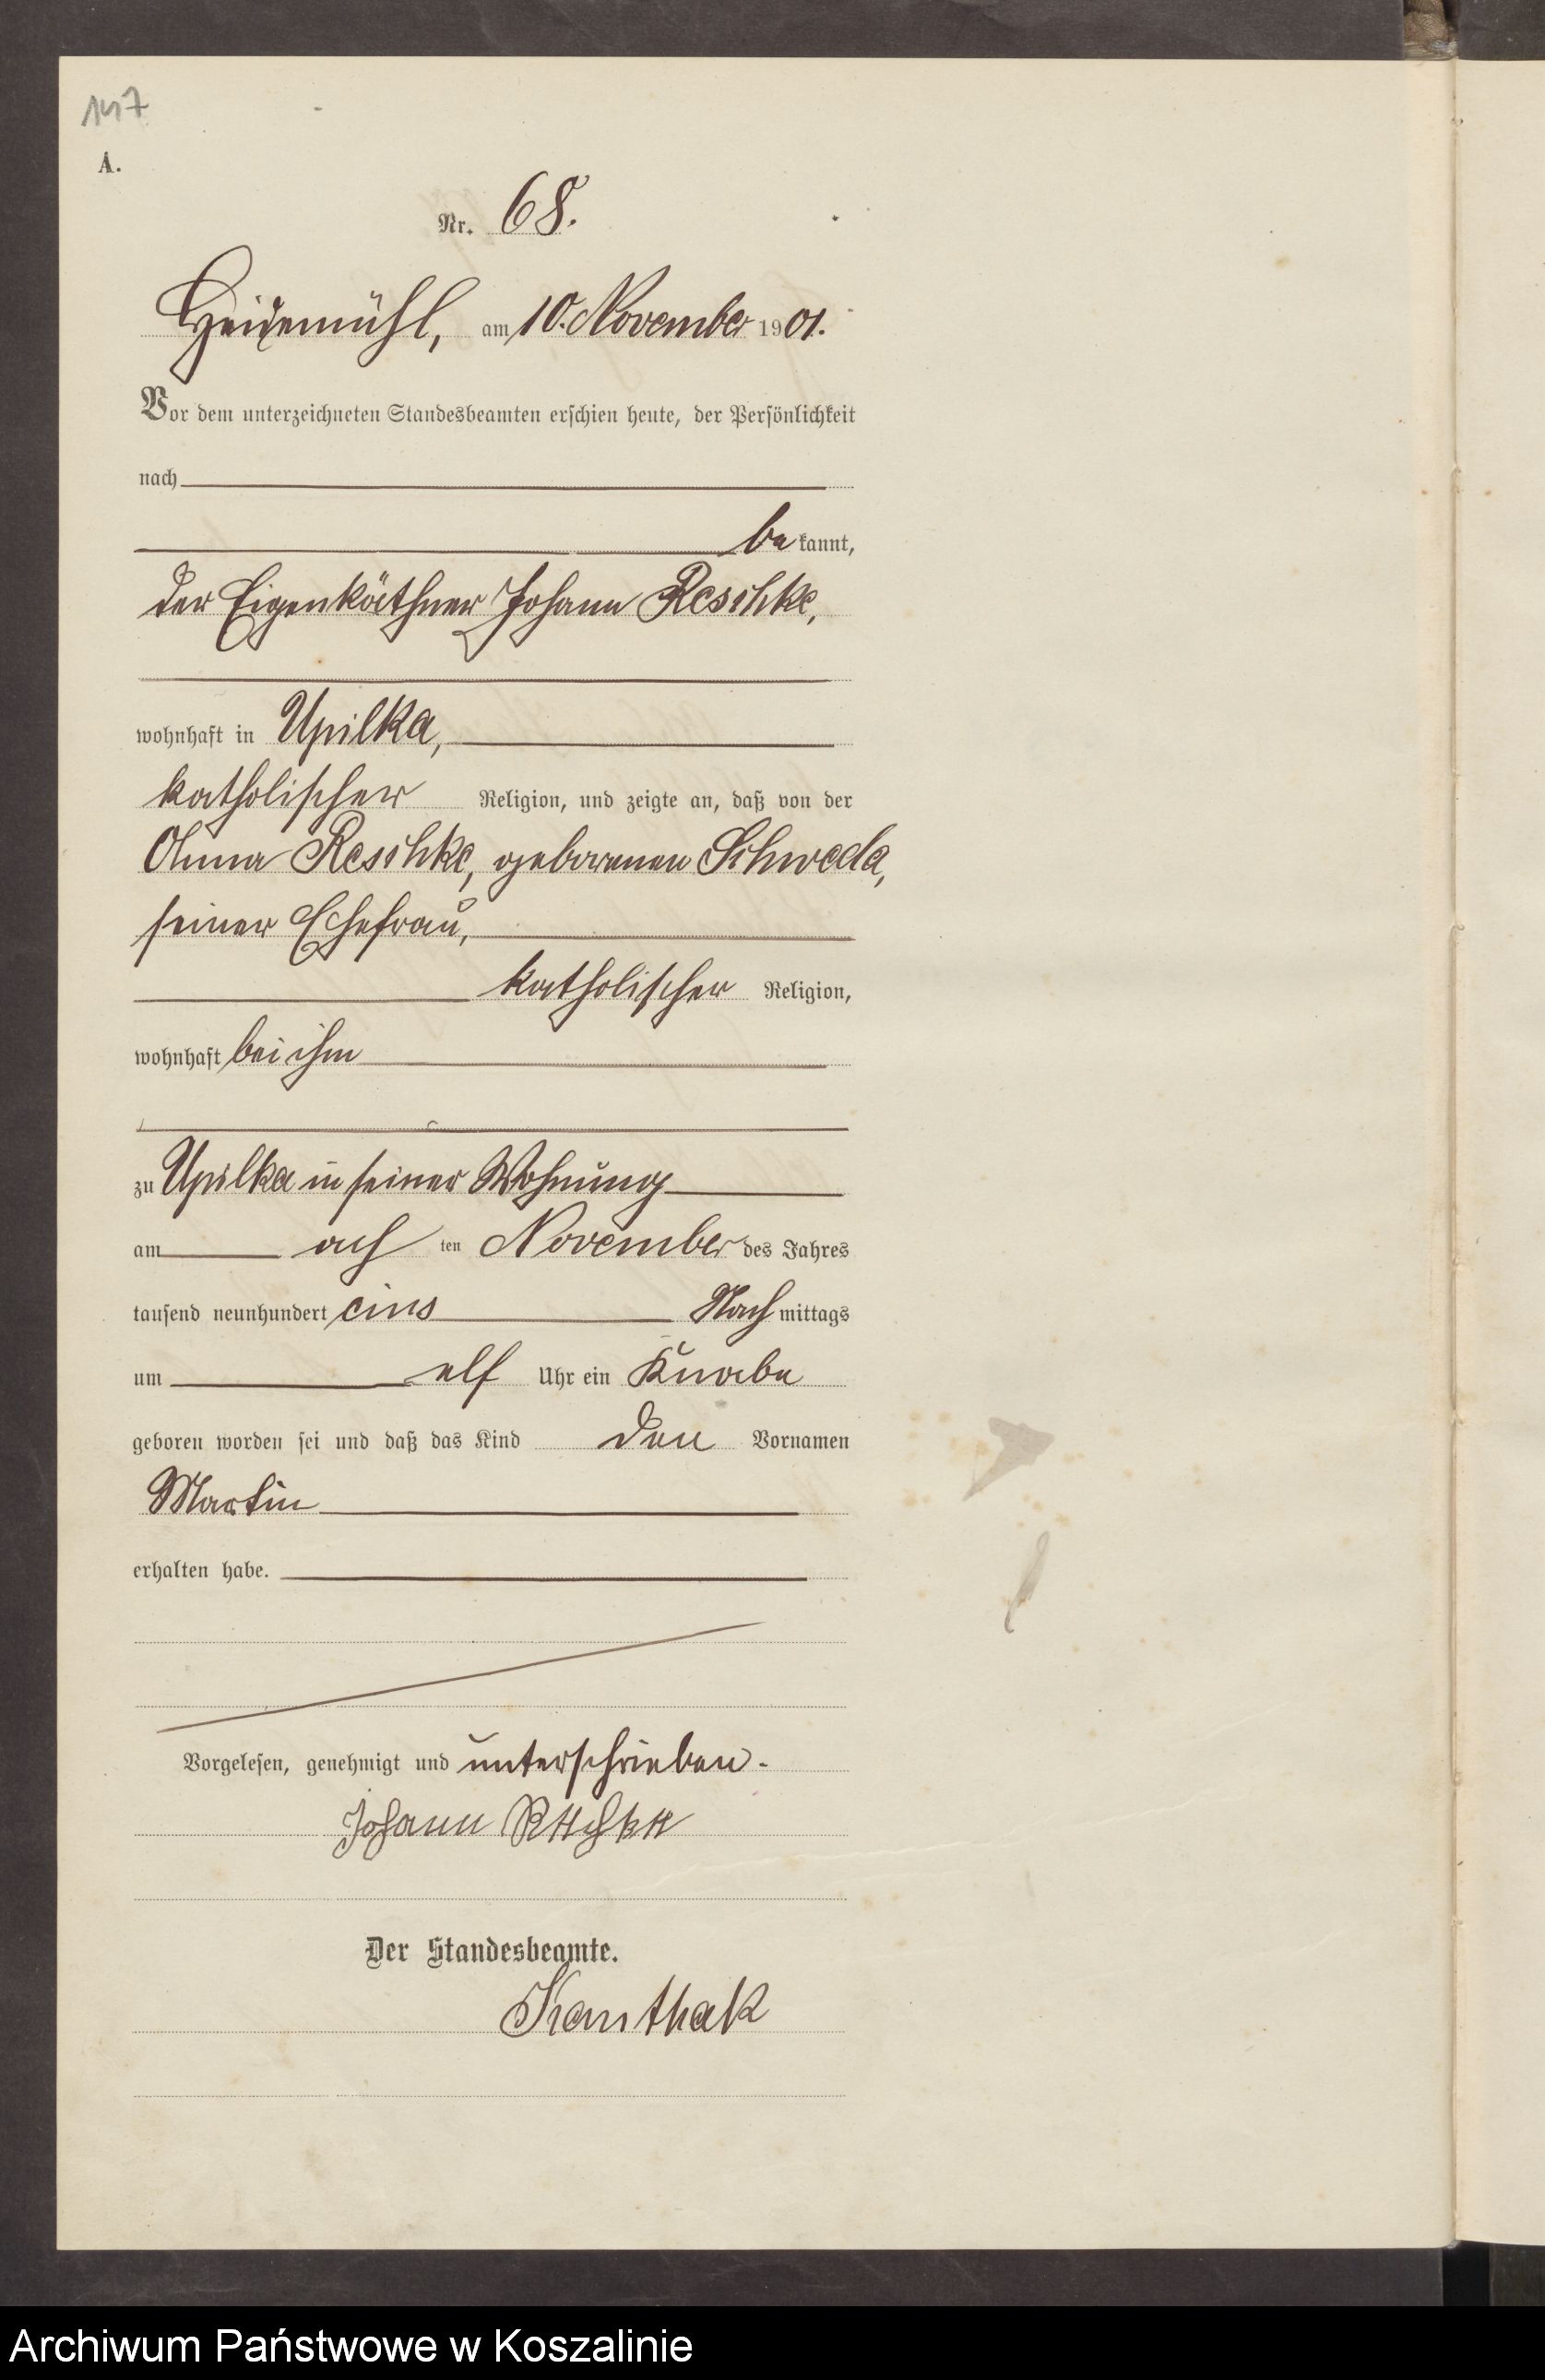 147
A.
Nr. 68.
Heidemühl, am 10. November 1901.
Vor dem unterzeichneten Standesbeamten erschien heute, der Persönlichkeit
nach
be kannt,
der Eigenkäthner Johann Reschke,
wohnhaft in Upilka,
katholischer Religion, und zeigte an, daß von der
Anna Reschke, geborenen Schweda,
seiner Ehefrau,
katholischer Religion,
wohnhaft bei ihm
zu Upilka in seiner Wohnung
am ach ten November des Jahres
tausend neunhundert eins Nach mittags
um elf Uhr ein Knabe
geboren worden sei und daß das Kind den Vornamen
Martin
erhalten habe.
Vorgelesen, genehmigt und unterschrieben.
Johann Reschke
Der Standesbeamte.
Kanthak
Archiwum Państwowe w Koszalinie